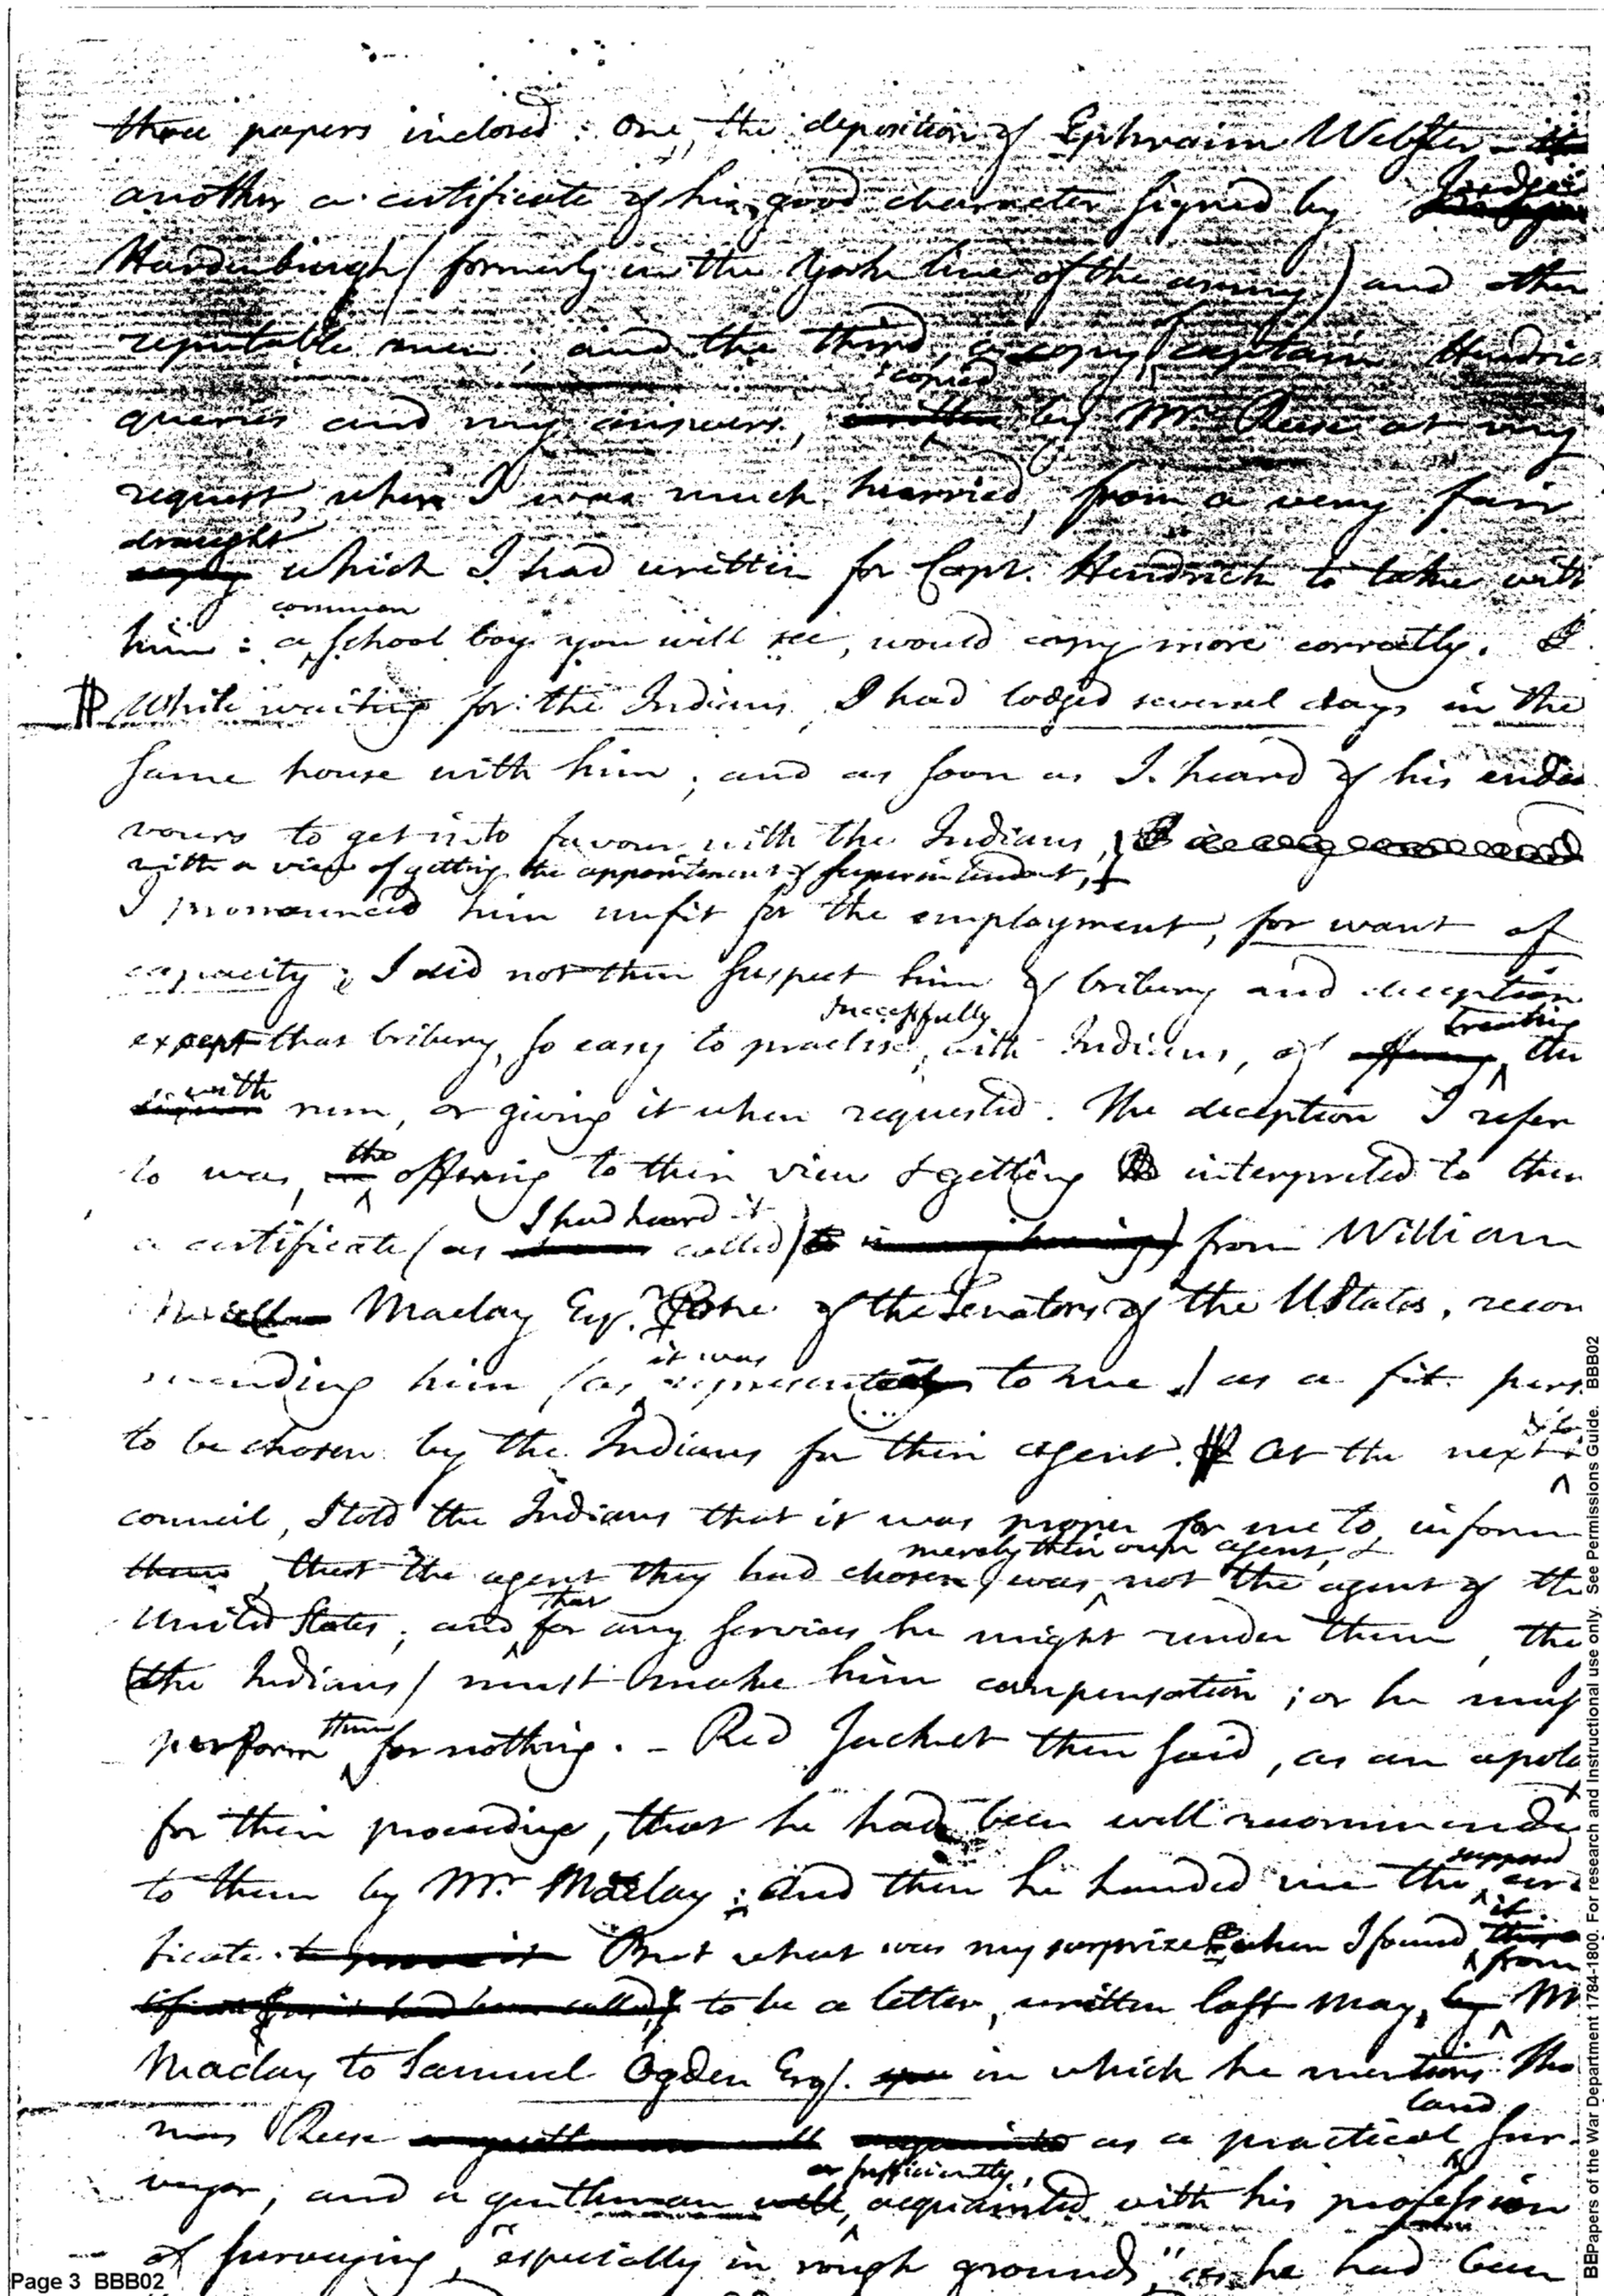 three papers inclosed: One, the deposition of Ephraim Webster
another a certificate of his good character signed by
Hardenburgh (formerly in the York line of the army) and other
reputable men; and the third, a copy, captain Hendrick
copied
queries and my answers, written by Mr. Reese at my
request, when I was much hurried, from a very fair
draught
copy which I had written for Capt. Hendrick to take with
common
him: a school boy you will see, would copy more correctly. I
While waiting for the Indians, I had lodged several days in the
same house with him; and as soon as I heard of his endea
vours to get into favour with the Indians,
with a view of getting the appointment of superintendent,
I pronounced him unfit for the employment, for want of
capacity; I did not then suspect him of bribery and deception
successfully treating
except that bribery, so easy to practise, with Indians, of offering the
with
rum, or giving it when requested. The deception I refer
the
to was, offering to their view & getting interpreted to them
I had heard it
a certificate (as called) from William
Maclay Esq. one of the Senators of the UStates, recom
it was
mending him (as represented to me) as a fit pers
to be chosen by the Indians for their agent. At the next
council, I told the Indians that it was proper for me to inform
merely their own agent, &
them, that the agent they had chosen, was not the agent of the
that
United States; and for any services he might render them, the
(the Indians) must make him compensation; or he may
them
perform for nothing. - Red Jacket then said, as an apolo
for their proceeding, that he had been well recommende
supposed
to them by Mr. Maclay: and then he handed me the cer
it
ficate. But what was my surprize when I found
from
to be a letter, written last May, by M
Maclay to Samuel Ogden Esq. in which he mentions Tho
land
mas Reese as a practical sur-
or sufficiently,
veyor, and a gentleman well, acquainted with his profession
of surveying, "especially in rough grounds," as he had been
Page 3 BBB02
BBPapers of the War Department 1784-1800. For research and Instructional use only. See Permissions Guide. BBB02